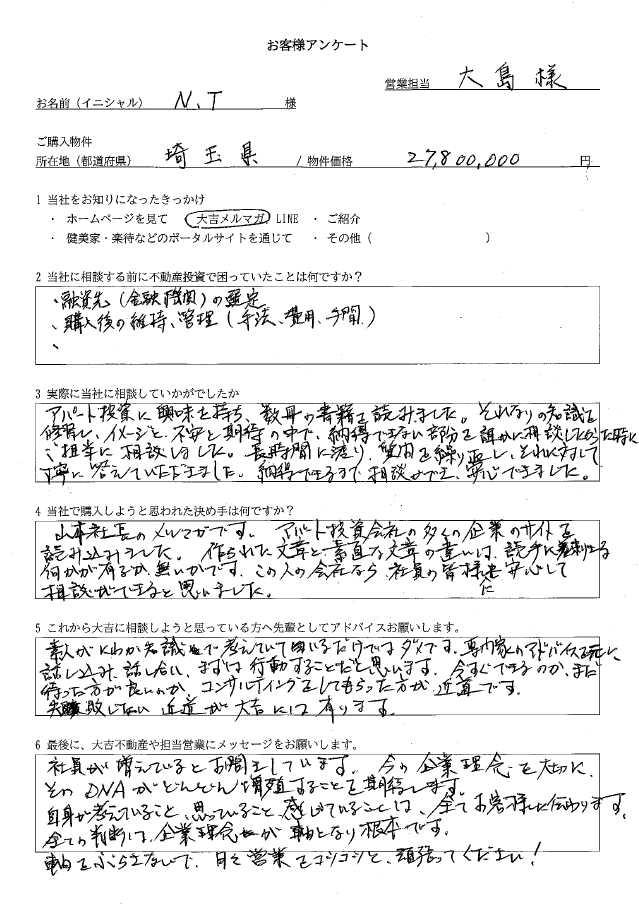 お客様アンケート
営業担当 大島様
お名前（イニシャル） N.T 様
ご購入物件
所在地（都道府県） 埼玉県 / 物件価格 27,800,000 円
1 当社をお知りになったきっかけ
・ ホームページを見て 大吉メルマガ LINE ・ ご紹介
・ 健美家・楽待などのポータルサイトを通じて ・ その他（ ）
2 当社に相談する前に不動産投資で困っていたことは何ですか？
・融資先（金融機関）の選定
・購入後の維持、管理（手法、費用、手間）
・
3 実際に当社に相談していかがでしたか
アパート投資に興味を持ち、数冊の書籍を読みました。それなりの知識を
修習し、イメージと、不安と期待の中で、納得できない部分を誰かに相談したかった時に
ご担当に相談しました。長時間に渡り、質問を繰り返し、それに対して
丁寧に答えていただきました。納得できるまで相談ができ、安心できました。
4 当社で購入しようと思われた決め手は何ですか？
山本社長のメルマガです。アパート投資会社の多くの企業のサイトを
読み込みました。作られた文章と素直な文章の違いは、読手に刺さる
何かが有るか無いかです。この人の会社なら社員の皆様に安心して
相談ができると思いました。
5 これから大吉に相談しようと思っている方へ先輩としてアドバイスお願いします。
素人がにわか知識で考えていて困いるだけではダメです。専門家のアドバイスを元に
話し込み、話し合い、まずは行動することだと思います。今すぐできるのか、また
待った方が良いのか、コンサルティングをしてもらった方が近道です。
失敗しない近道が大吉には有ります。
6 最後に、大吉不動産や担当営業にメッセージをお願いします。
社員が増えているとお聞きしています。今の企業理念を大切に、
そのDNAがどんどん増殖することを期待します。
自身が考えていること、思っていること、感じていることは、全てお客様に伝わります。
全ての判断は、企業理念が軸となり根本です。
軸をぶらさないで、日々営業をコツコツと、頑張ってください！